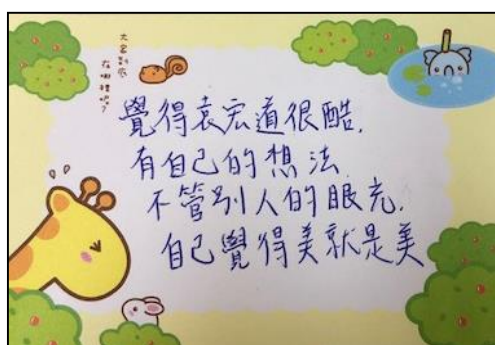 大家到底
在哪裡呢？
覺得袁宏道很酷.
有自己的想法
不管別人的眼光.
自己覺得美就是美